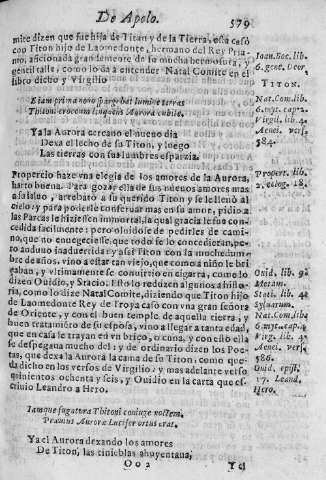 De Apolo. 579
mite dizen que fue hija de Titan y de la Tierra, esta casò
con Titon hijo de Laomedonte, hermano del Rey Pria-
mo, aficionada grandemente de su mucha hermosura, y
gentil talle, como lo da à entender Natal Comite en el
libro dicho y Virgilio
Et iam prima nouo spargebat lumine terras
Tithoni croceum linquens Aurora cubile.
Ya la Aurora cercano el nueuo dia
Dexa el lecho de su Titon, y luego
Las tierras con sus lumbres esparzia.
Propercio haze vna elegia de los amores de la Aurora,
harto buena. Para gozar ella de sus nueuos amores mas
a su saluo, arrebatò a su querido Titon y se le lleuò al
cielo y para poderle conseruar mas en su amor, pidio a
las Parcas le hiziessen inmortal, la qual gracia le fue con-
cedida facilmente: pero oluidose de pedirles de cami-
no, que no enuegeciesse, que todo se lo concedieran, pe-
ro anduuo inaduertida y assi Titon con la muchedum-
bre de años, vino a estar tan viejo, que como a niño le bri
gaban, y vltimamente se conuirtio en cigarra, como lo
dizen Ouidio, y Stacio. Esto lo reduzen algunos a histo-
ria, como lo dize Natal Comite, diziendo que Titon hijo
de Laomedonte Rey de Troya casò con vna gran señora
de Oriente, y con el buen temple de aquella tierra, y
buen tratamiẽto de su esposa, vino a llegar a tanta edad,
que en casa le trayan en vn brico, o cuna, y con esto ella
se despegaua mucho del: y de ordinario dizen los Poe-
tas, que dexa la Aurora la cama de su Titon, como que-
da dicho en los versos de Virgilio: y mas adelante verso
quinientos ochenta y seis, y Ouidio en la carta que es-
criuio Leandro a Hero.
Iamque fugatura Tithoni coniuge noctem,
Præuius Auroræ Lucifer ortus erat.
Ya el Aurora dexando los amores
De Titon, las tinieblas ahuyentaua,
Oo 2 Y el
Ioan. Boc. lib.
6. gene. Deor.
TITON.
Nat. Com. lib.
6. myt. cap. 2
Virgil. lib. 4.
Aenei. vers.
584.
Propert. lib.
2. eleg. 18.
Ouid. lib. 9.
Metam.
Stati. lib. 4.
Syluarum.
Nat. Com. lib.
6. myt. cap. 2
Virg. lib. 4.
Aenei. vers.
586.
Ouid. epist.
17. Leand.
Hero.